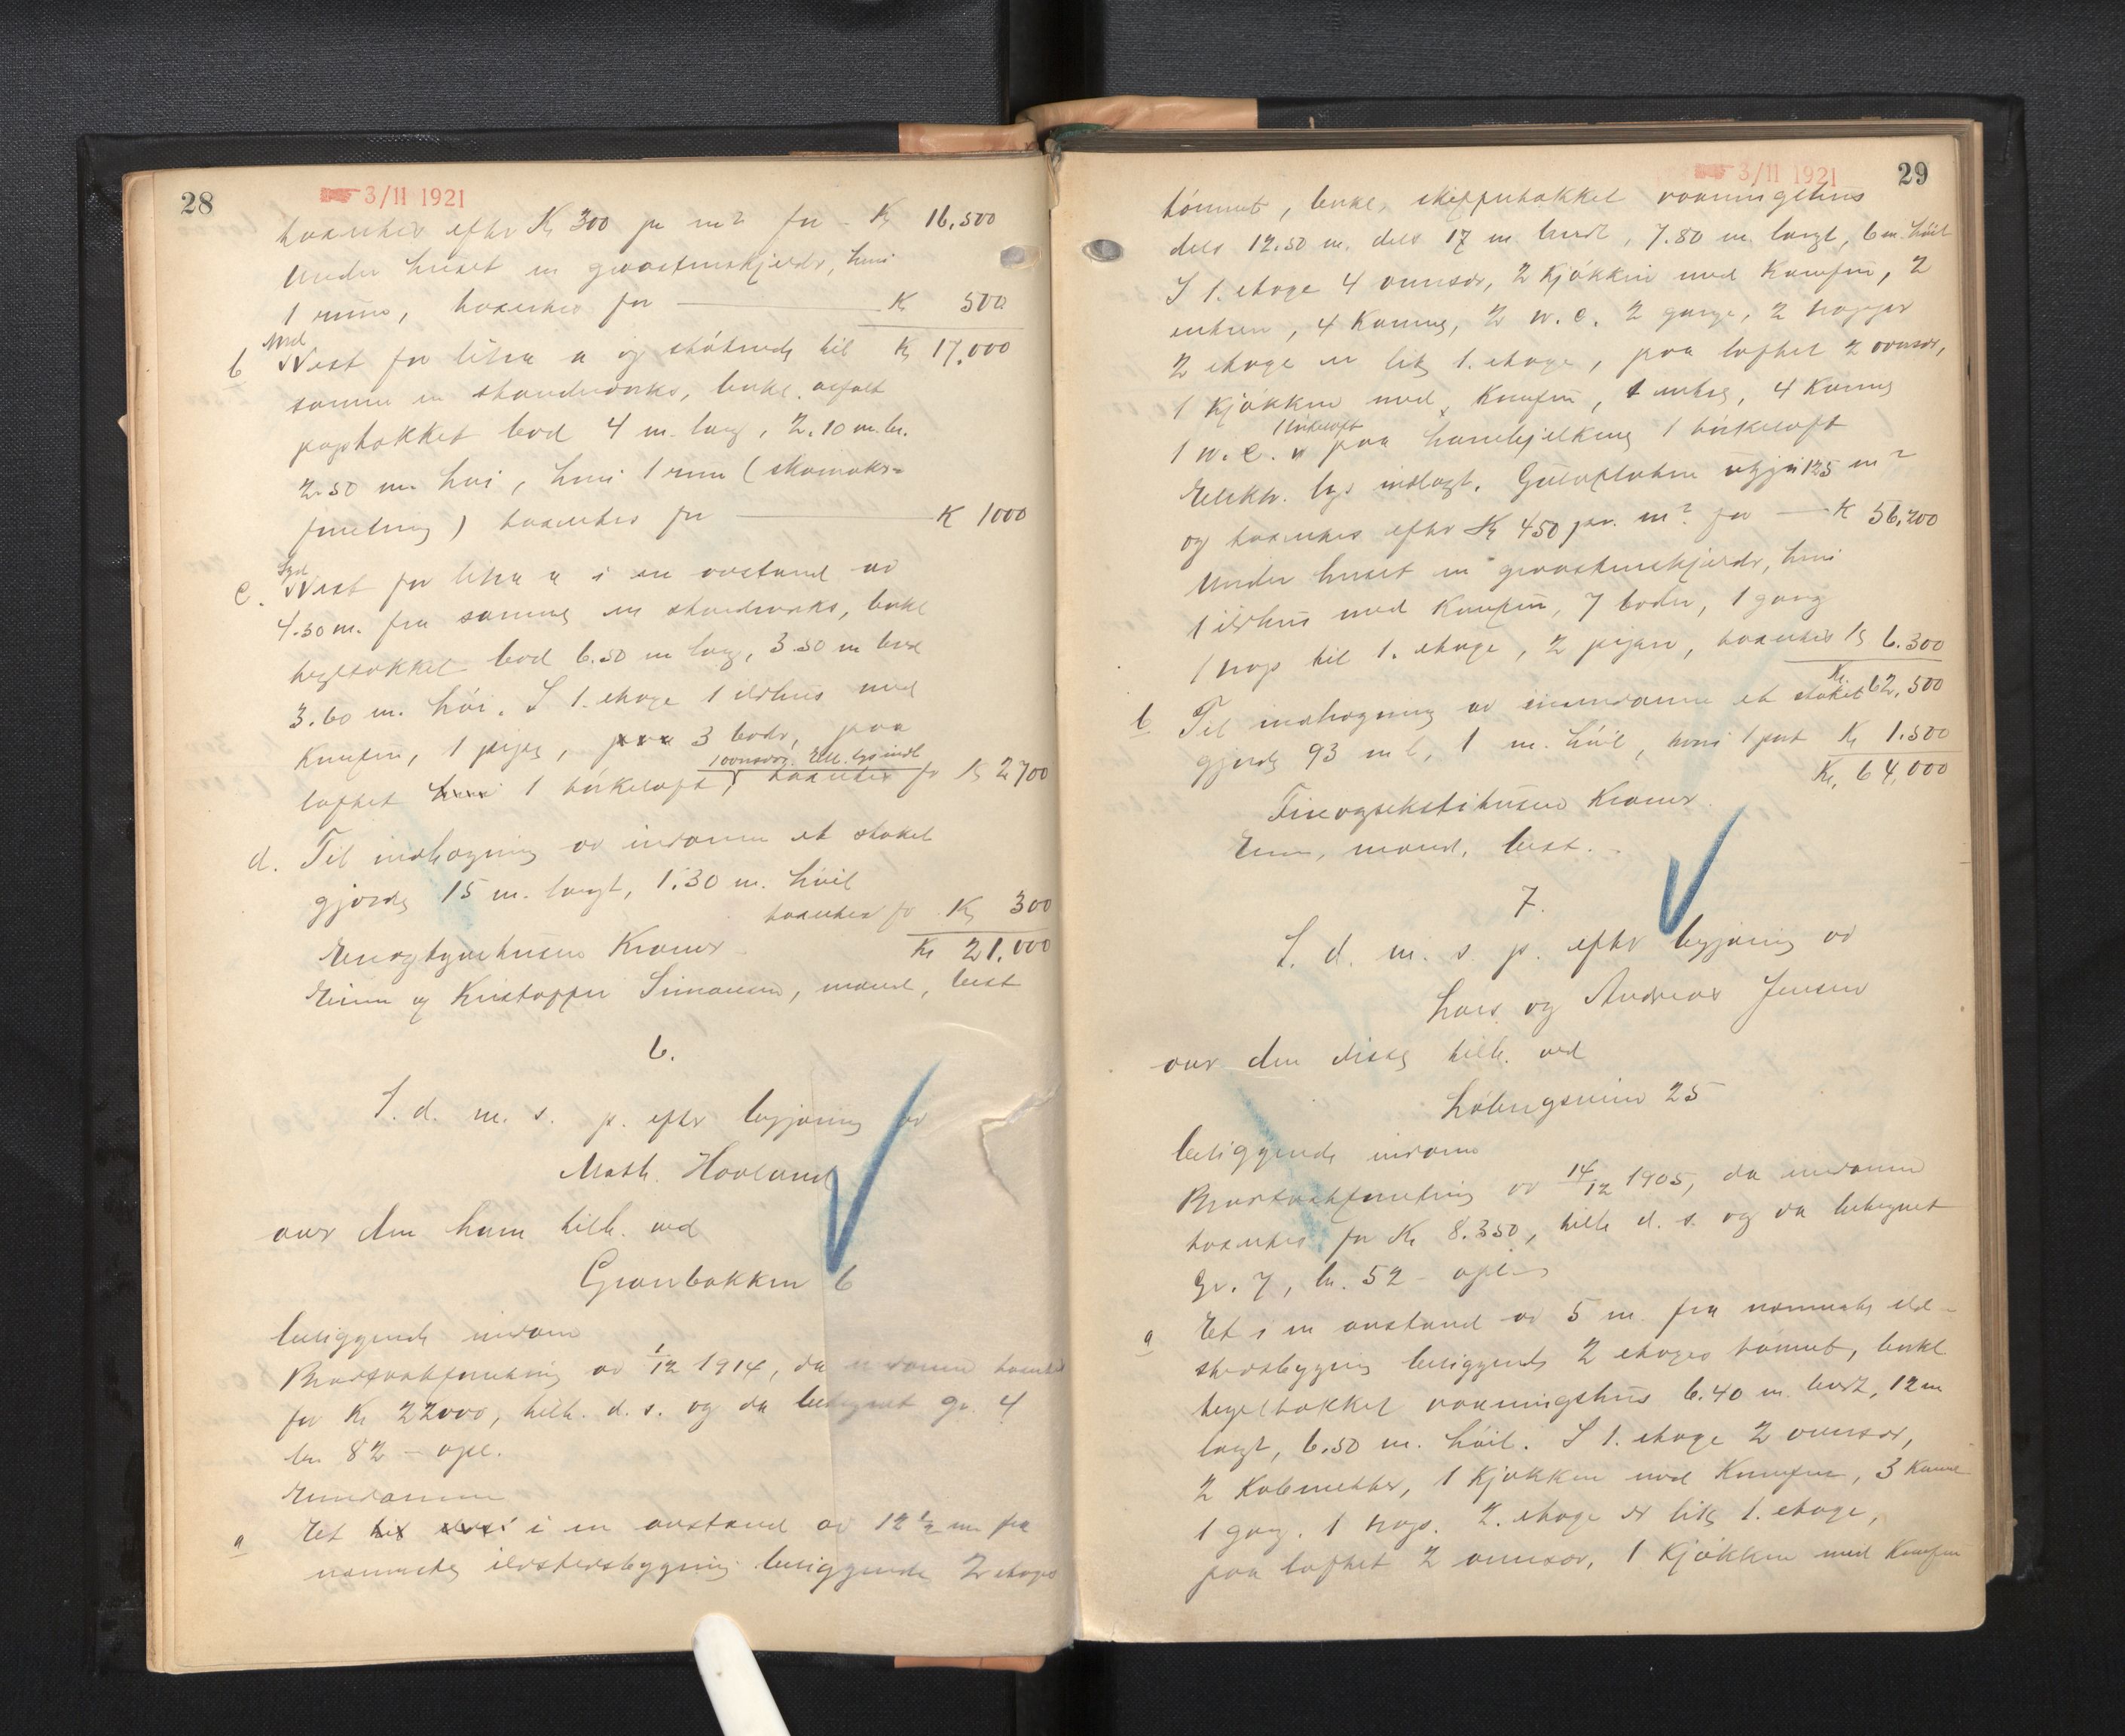 28
3/11 1921
taxeches efter Kr 300 pr m2 for - Kr 16.500
Under huset en graastenskjelder, hvori
1 rum, taxeches for Kr 500
Kr 17.000
b Nord
Vest for litra a og støtende til
samme en standværks, bekl. asfalt
paptakket bod 4 m. lang, 2.10 m. br.
2.50 m. høi, hvori 1 rum (skomaker-
forretning) taxeches for K 1000
c. Syd
Vest for litra a i en avstand av
4.50 m. fra samme en standværks, bekl
tegltakket bod 6.50 m lang, 3.50 m bred
3.60 m. høi. I 1. etage 1 ildhus med
Komfur, 1 pipe, 3 boder, paa
1 ovnsvær. Elek. lys indl.
loftet 1 tørkeloft, taxeches for Kr 2700
d. Til indhegning av eiendommen et stakit
gjærde 15 m. langt, 1.30 m. høit
taxeches for Kr 300
Enogtyvetusen Kroner Kr 21.000
Eieren og Kristoffer Simonsen, mand, best
6.
S. d. m. s. p. efter begjæring av
Math. Hovland
over den ham tilh. ved
Grønbakken 6
beliggende eiendom
Brandtakstforretning av 1/12 1914, da eiendommen taxertes
for Kr 22000, tilh. d. s. og da betegnet gr. 4
br 82 - opl.
Eiendommen
a Et i en avstand av 12 1/2 m fra
nærmeste ildstedsbygning beliggende 2 etages
29
3/11 1921
tømret, bekl, skiffertakket vaaningshus
dels 12.50 m. dels 17 m. bredt, 7.80 m. langt, 6 m. høit
I 1. etage 4 ovnsvær, 2 kjøkken med Komfur, 2
entreer, 4 Kamre, 2 w.c. 2 gange, 2 trapper
2 etage er lik 1. etage, paa loftet 2 ovnsvær,
1 kjøkken med Komfur, 1 entre, 4 Kamre
1 tørkeloft
1 w.c. paa hanebjelkene 1 tørkeloft
Elektr. lys indlagt. Gulvflaten utgjør 125 m2
og taxeches efter Kr 450 pr. m2 for K 56.200
Under huset en graastenskjelder, hvori
1 ildhus med Komfur, 7 boder, 1 gang
1 trap til 1. etage, 2 piper, taxeches Kr 6.300
Kr. 62.500
b Til indhegning av eiendommen et stakit
gjærde 93 m l, 1 m. høit, hvori 1 port Kr 1.500
Kr. 64.000
Fireogsekstitusen Kroner.
Eier, mand, best.
7.
S. d. m. s. p. efter begjæring av
Lars og Andreas Jensen
over den disse tilh. ved
Løbergsveien 25
beliggende eiendom
Brandtakstforretning av 14/12 1905, da eiendommen
taxertes for Kr 8.350, tilh d. s. og da betegnet
Gr. 7, br. 52 - opl
a Et i en avstand av 5 m. fra nærmeste ild-
stedsbygning beliggende 2 etages tømret, bekl
tegltakket vaaningshus 6.40 m. bredt, 12 m
langt, 6.50 m. høit. I 1. etage 2 ovnsvær,
2 Kabinetter, 1 kjøkken med Komfur, 3 Kamre
1 gang. 1 trap. 2. etage er lik 1. etage,
paa loftet 2 ovnsvær, 1 kjøkken med Komfur